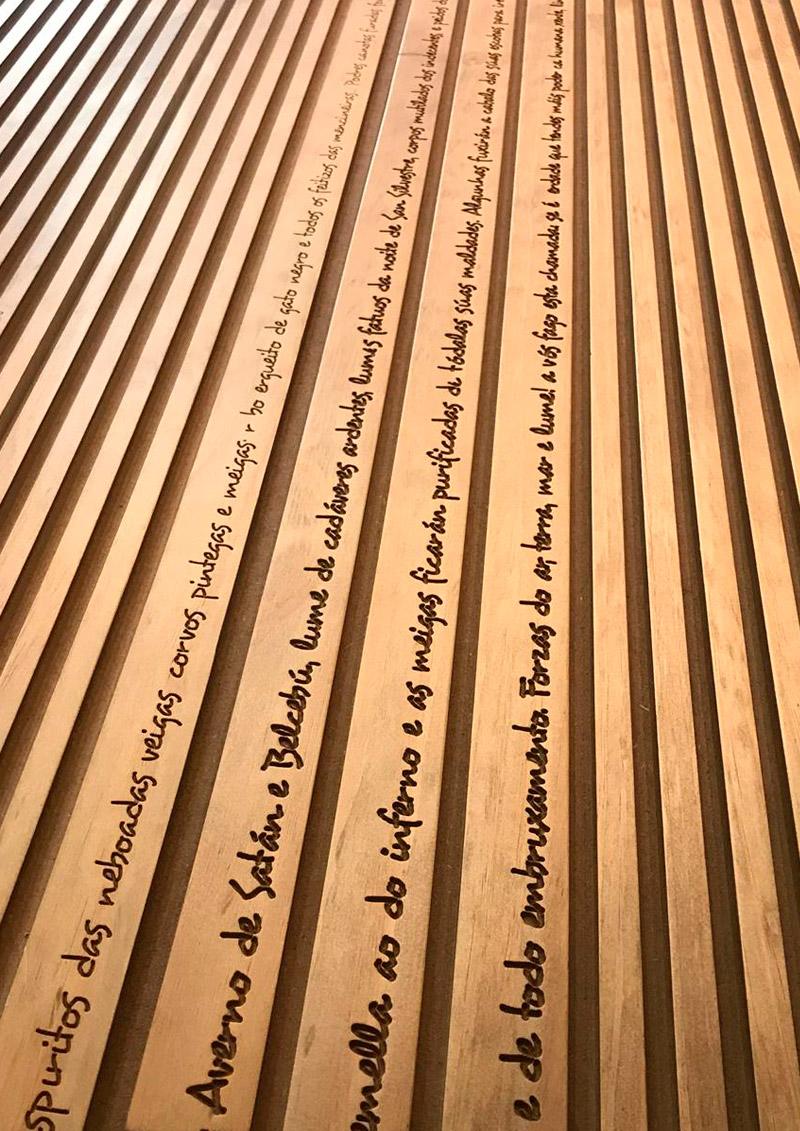 spiritos das neboadas veigas corvos pintegas e meigas r bo ergueito de gato negro e todos os feitizos das menciñeiras. Podres cañotas furadas
Averno de Satán e Belcebú, lume de cadáveres ardentes, lumes fatuos da noite de San Silvestre, corpos mutilados dos indecentes e peidos
emella ao do inferno e as meigas ficarán purificadas de tódalas súas maldades. Algunhas fuxirán a cabalo das súas escobas para
e de todo embruxamento. Forzas do ar, terra, mar e lume! a vós fago esta chamada: se é verdade que tendes máis poder ca humana xente,